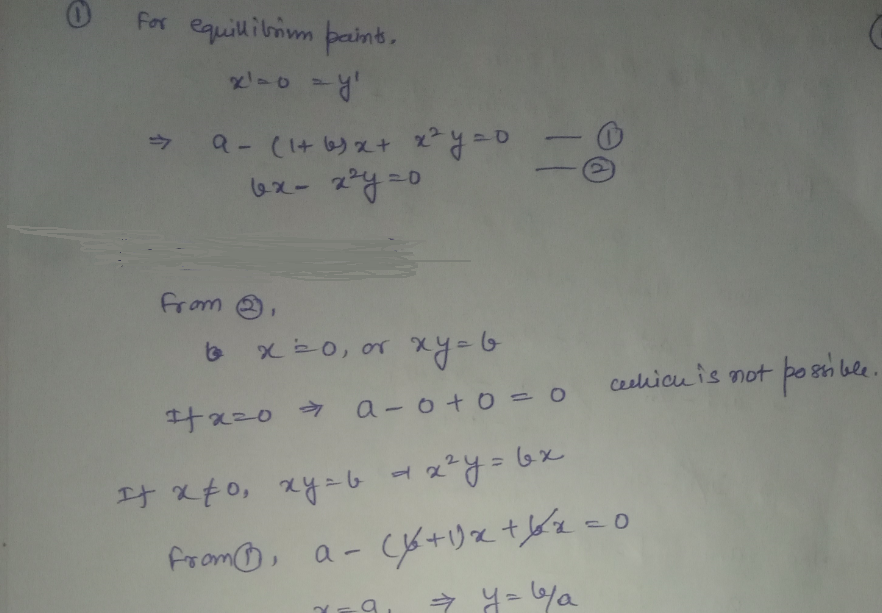 ① For equillibrium points.
x' = 0 = y'
⇒ a - (1+b)x + x²y = 0 — ①
bx - x²y = 0 — ②
from ②,
x = 0, or xy = b
If x = 0 ⇒ a - 0 + 0 = 0 which is not possible.
If x ≠ 0, xy = b ⇒ x²y = bx
from ①, a - (b+1)x + bx = 0
x = a, ⇒ y = b/a